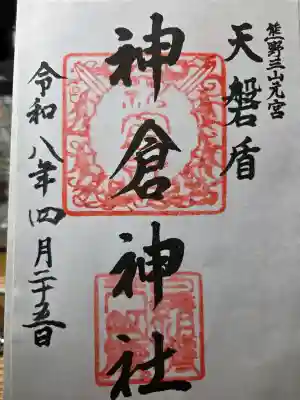 熊野三山元宮
天磐盾
神倉神社
令和八年四月二十五日